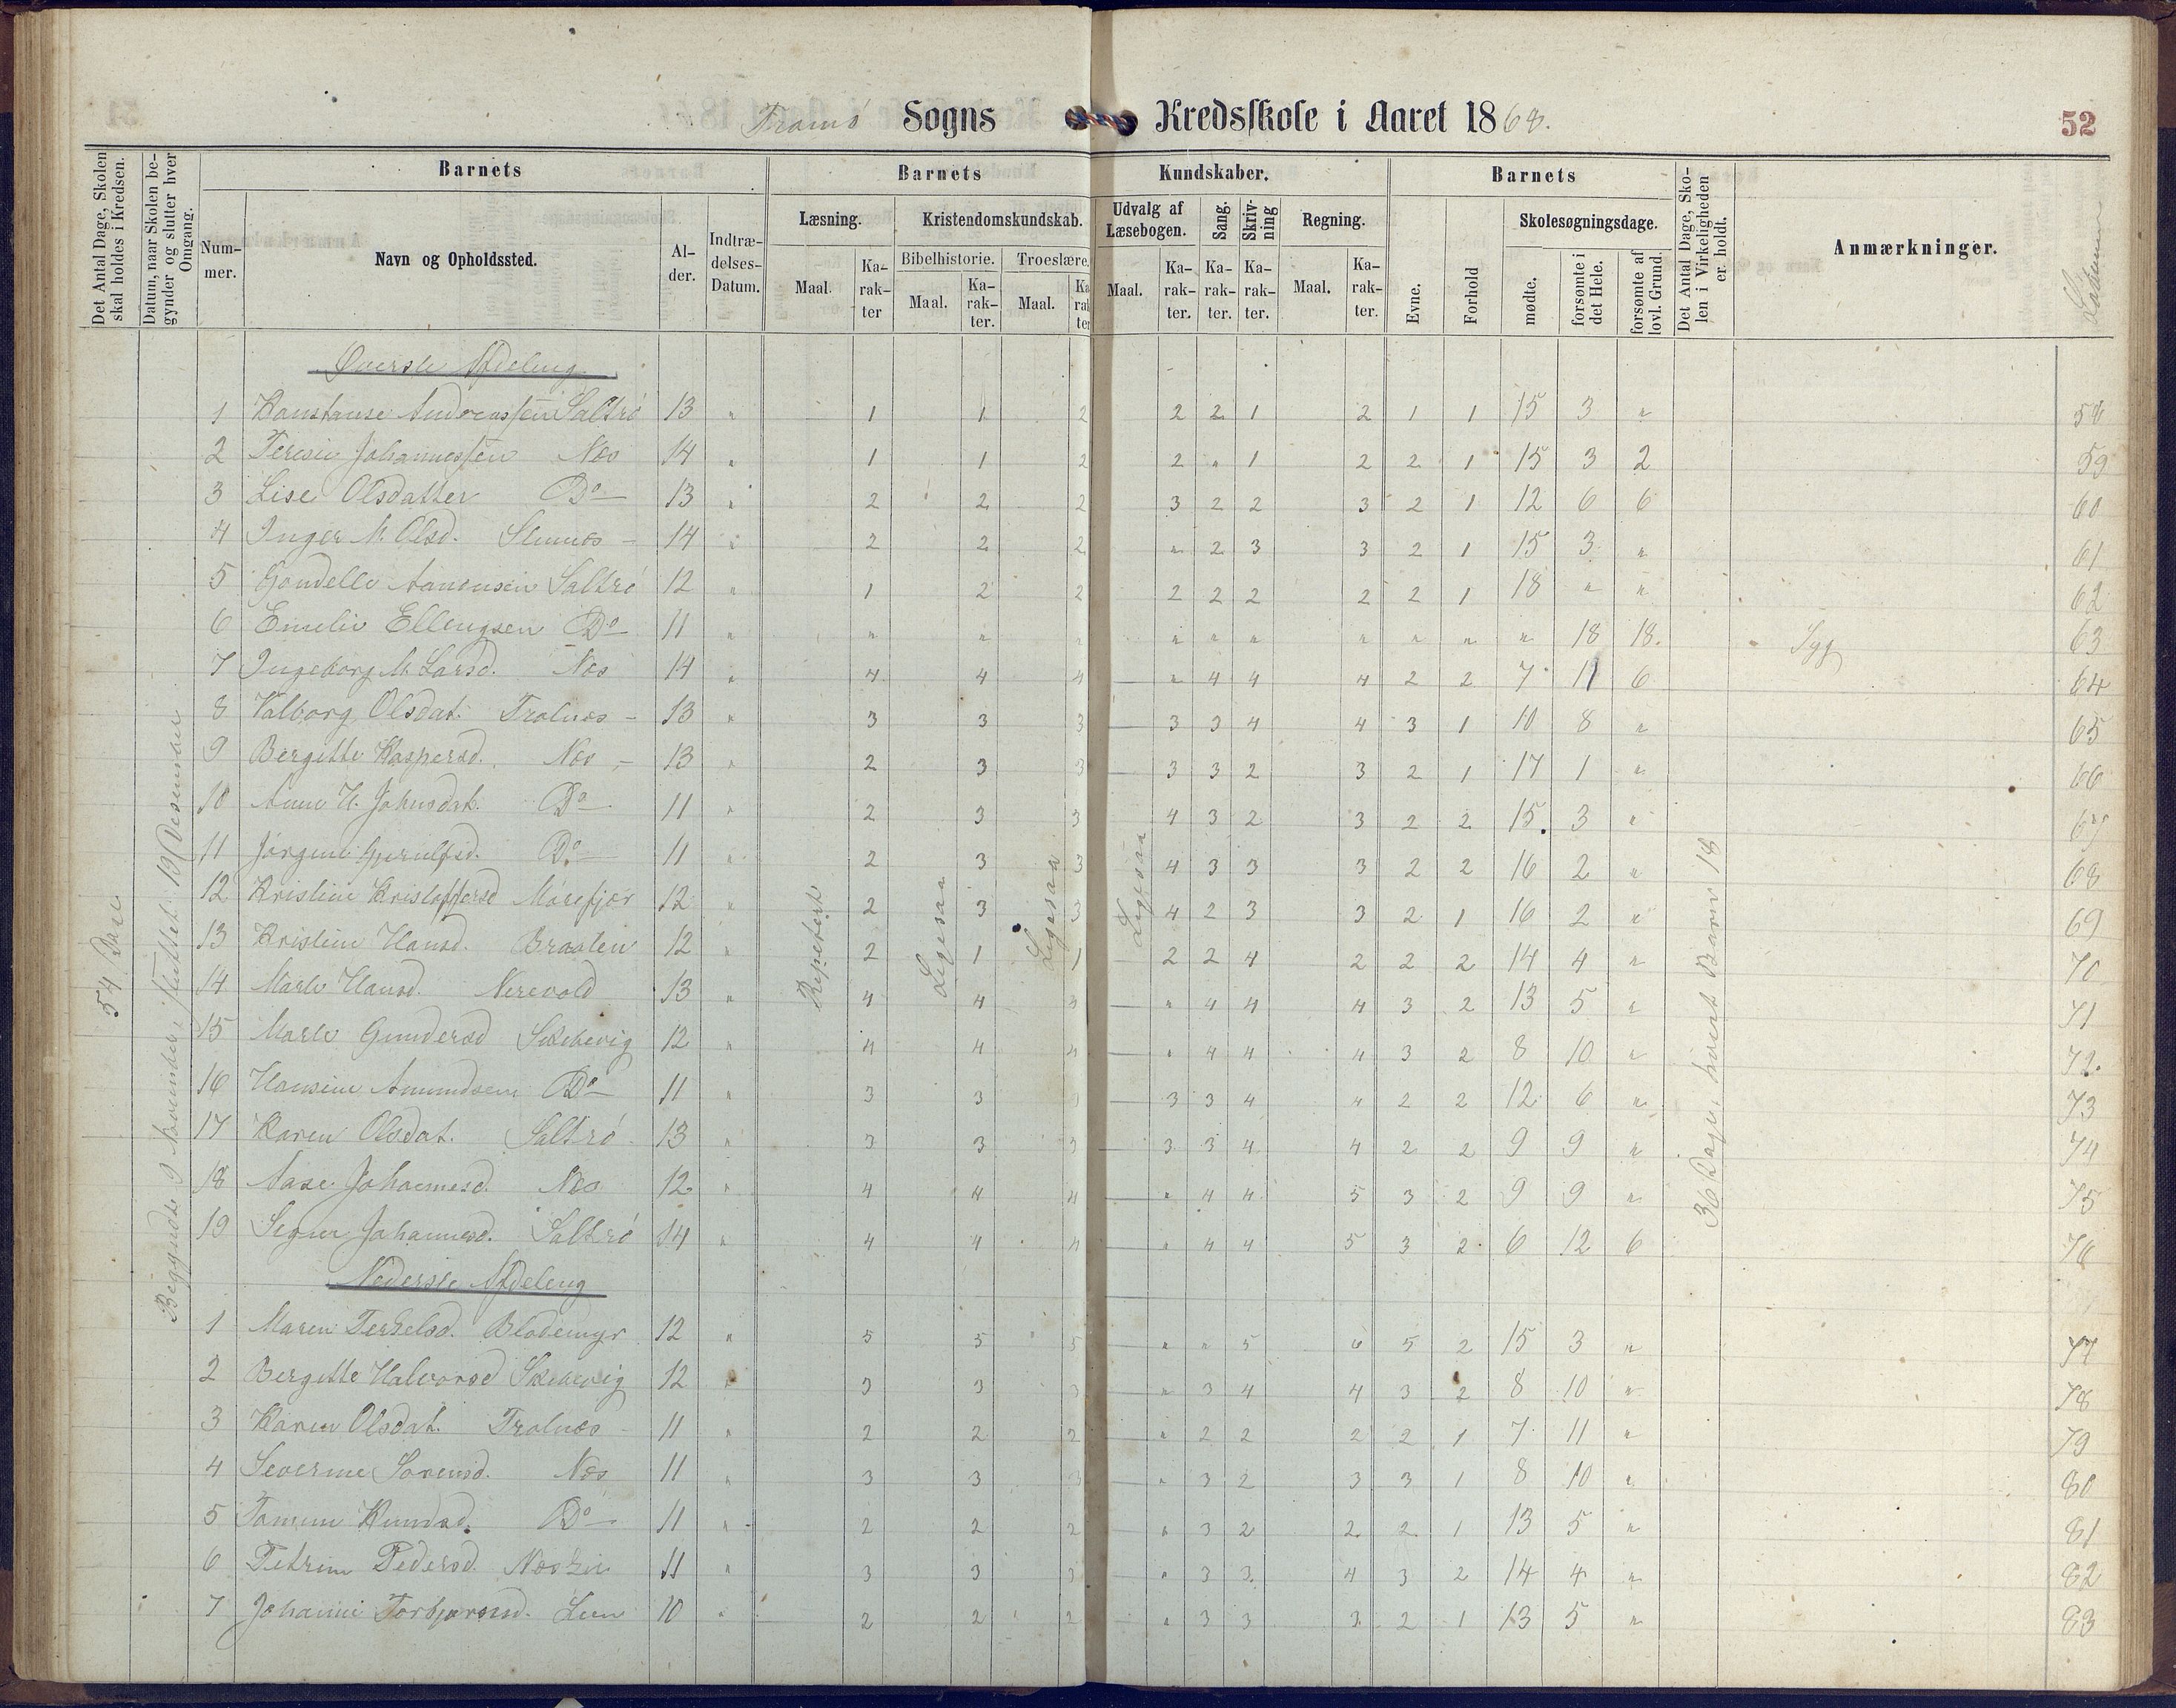 Tromø Sogns Kredsskole i Aaret 1868. 52
Det Antal Dage, Skolen skal holdes i Kredsen.
Datum, naar Skolen begynder og slutter hver Omgang.
Barnets
Nummer.
Navn og Opholdssted.
Alder.
Indtrædelses-Datum.
Barnets Kundskaber.
Læsning.
Maal.
Karakter
Kristendomskundskab.
Bibelhistorie.
Maal.
Karakter.
Troeslære.
Maal.
Karakter
Udvalg af Læsebogen.
Maal.
Karakter.
Sang.
Karakter.
Skrivning
Karakter.
Regning.
Maal.
Karakter.
Barnets
Evne.
Forhold
Skolesøgningsdage.
mødte.
forsømte i det Hele.
forsømte af lovl. Grund.
Det Antal Dage, Skolen i Virkeligheden er holdt.
Anmærkninger.
54 Dage
Begyndte 9 November, sluttet 19 Desember
Repetert
Ligesaa
Ligesaa
Ligesaa
36 Dage, hvert Barn 18
Øverste Afdeling
1 Konstanse Andreassen Saltrø 13 " 1 1 2 2 2 1 2 1 1 15 3 " 58
2 Teresie Johannessen Næs 14 " 1 1 2 2 " 1 2 2 1 15 3 2 59
3 Lise Olsdatter Do 13 " 2 2 2 3 2 2 3 2 1 12 6 6 60
4 Inger M. Olsd. 14 " 2 2 2 " 2 3 3 2 1 15 3 " 61
5 Saltrø 12 " 1 2 2 2 2 2 2 2 1 18 " " 62
6 Emelie Ellengsen Do 11 " " " " " " " " " " " 18 18. Syg 63
7 Ingeborg M. Larsd. Næs 14 " 4 4 4 " 4 4 4 2 2 7 11 6 64
8 Valborg Olsdat. Trolnæs 13 " 3 3 3 3 3 4 4 3 1 10 8 " 65
9 Bergitte Kaspersd. Næs 13 " 2 3 3 3 3 2 3 2 1 17 1 " 66
10 Anne H. Johnsdat. Do 11 " 2 3 3 4 3 2 3 2 2 15 3 " 67
11 Jørgine Do 11 " 2 3 3 4 3 3 3 2 2 16 2 " 68
12 Kristine Kristoffersd Morefjær 12 " 2 3 3 4 2 3 3 2 1 16 2 " 69
13 Kristine Hansd. Braaten 12 " 2 1 1 2 2 4 2 2 2 14 4 " 70
14 Marte Hansd. Nerevold 13 " 4 4 4 " 4 4 4 3 2 13 5 " 71
15 Marte Gundersd Skebevig 12 " 4 4 4 " 4 4 4 3 2 8 10 " 72.
16 Hansine Amundsen Do 11 " 3 3 3 3 4 4 2 2 12 6 " 73
17 Karen Olsdat. Saltrø 13 " 3 3 3 3 3 4 4 2 2 9 9 " 74
18 Aase Johannesd. Næs 12 " 4 4 4 " 4 4 5 3 2 9 9 " 75
19 Signe Johannesd. Saltrø 14 " 4 4 4 " 4 4 5 3 2 6 12 6 76
Nederste Afdeling
1 Maren Terkelsd. Blodemyr 12 " 5 5 5 " " 5 6 5 2 15 3 " 77
2 Bergitte Halvorsd Skebevig 12 " 3 3 3 " 3 4 4 3 2 8 10 " 78
3 Karen Olsdat. Trolnæs 11 " 2 2 2 " 2 2 2 2 1 7 11 " 79
4 Severine Sørensd. Næs 11 " 3 3 3 " 3 2 3 3 1 8 10 " 80
5 Tomine Knudsd. Do 11 " 2 2 2 " 3 2 2 2 1 13 5 " 81
6 Petrine Pedersd. 11 " 3 3 3 " 3 3 4 3 2 14 4 " 82
7 Johanne Torbjørnsd. 10 " 2 2 2 " 3 3 3 2 1 13 5 " 83